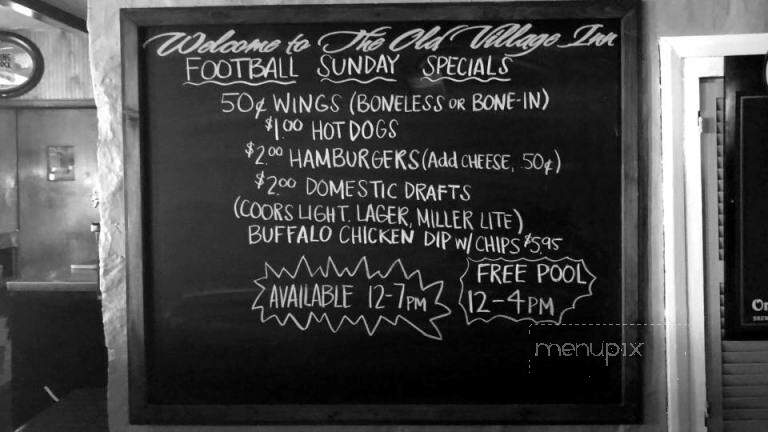 Welcome to The Old Village Inn
FOOTBALL SUNDAY SPECIALS
50¢ WINGS (BONELESS OR BONE-IN)
$1.00 HOT DOGS
$2.00 HAMBURGERS (Add CHEESE, .50¢)
$2.00 DOMESTIC DRAFTS
(COORS LIGHT, LAGER, MILLER LITE)
BUFFALO CHICKEN DIP W/ CHIPS $5.95
AVAILABLE 12-7PM
FREE POOL
12-4PM
menupix